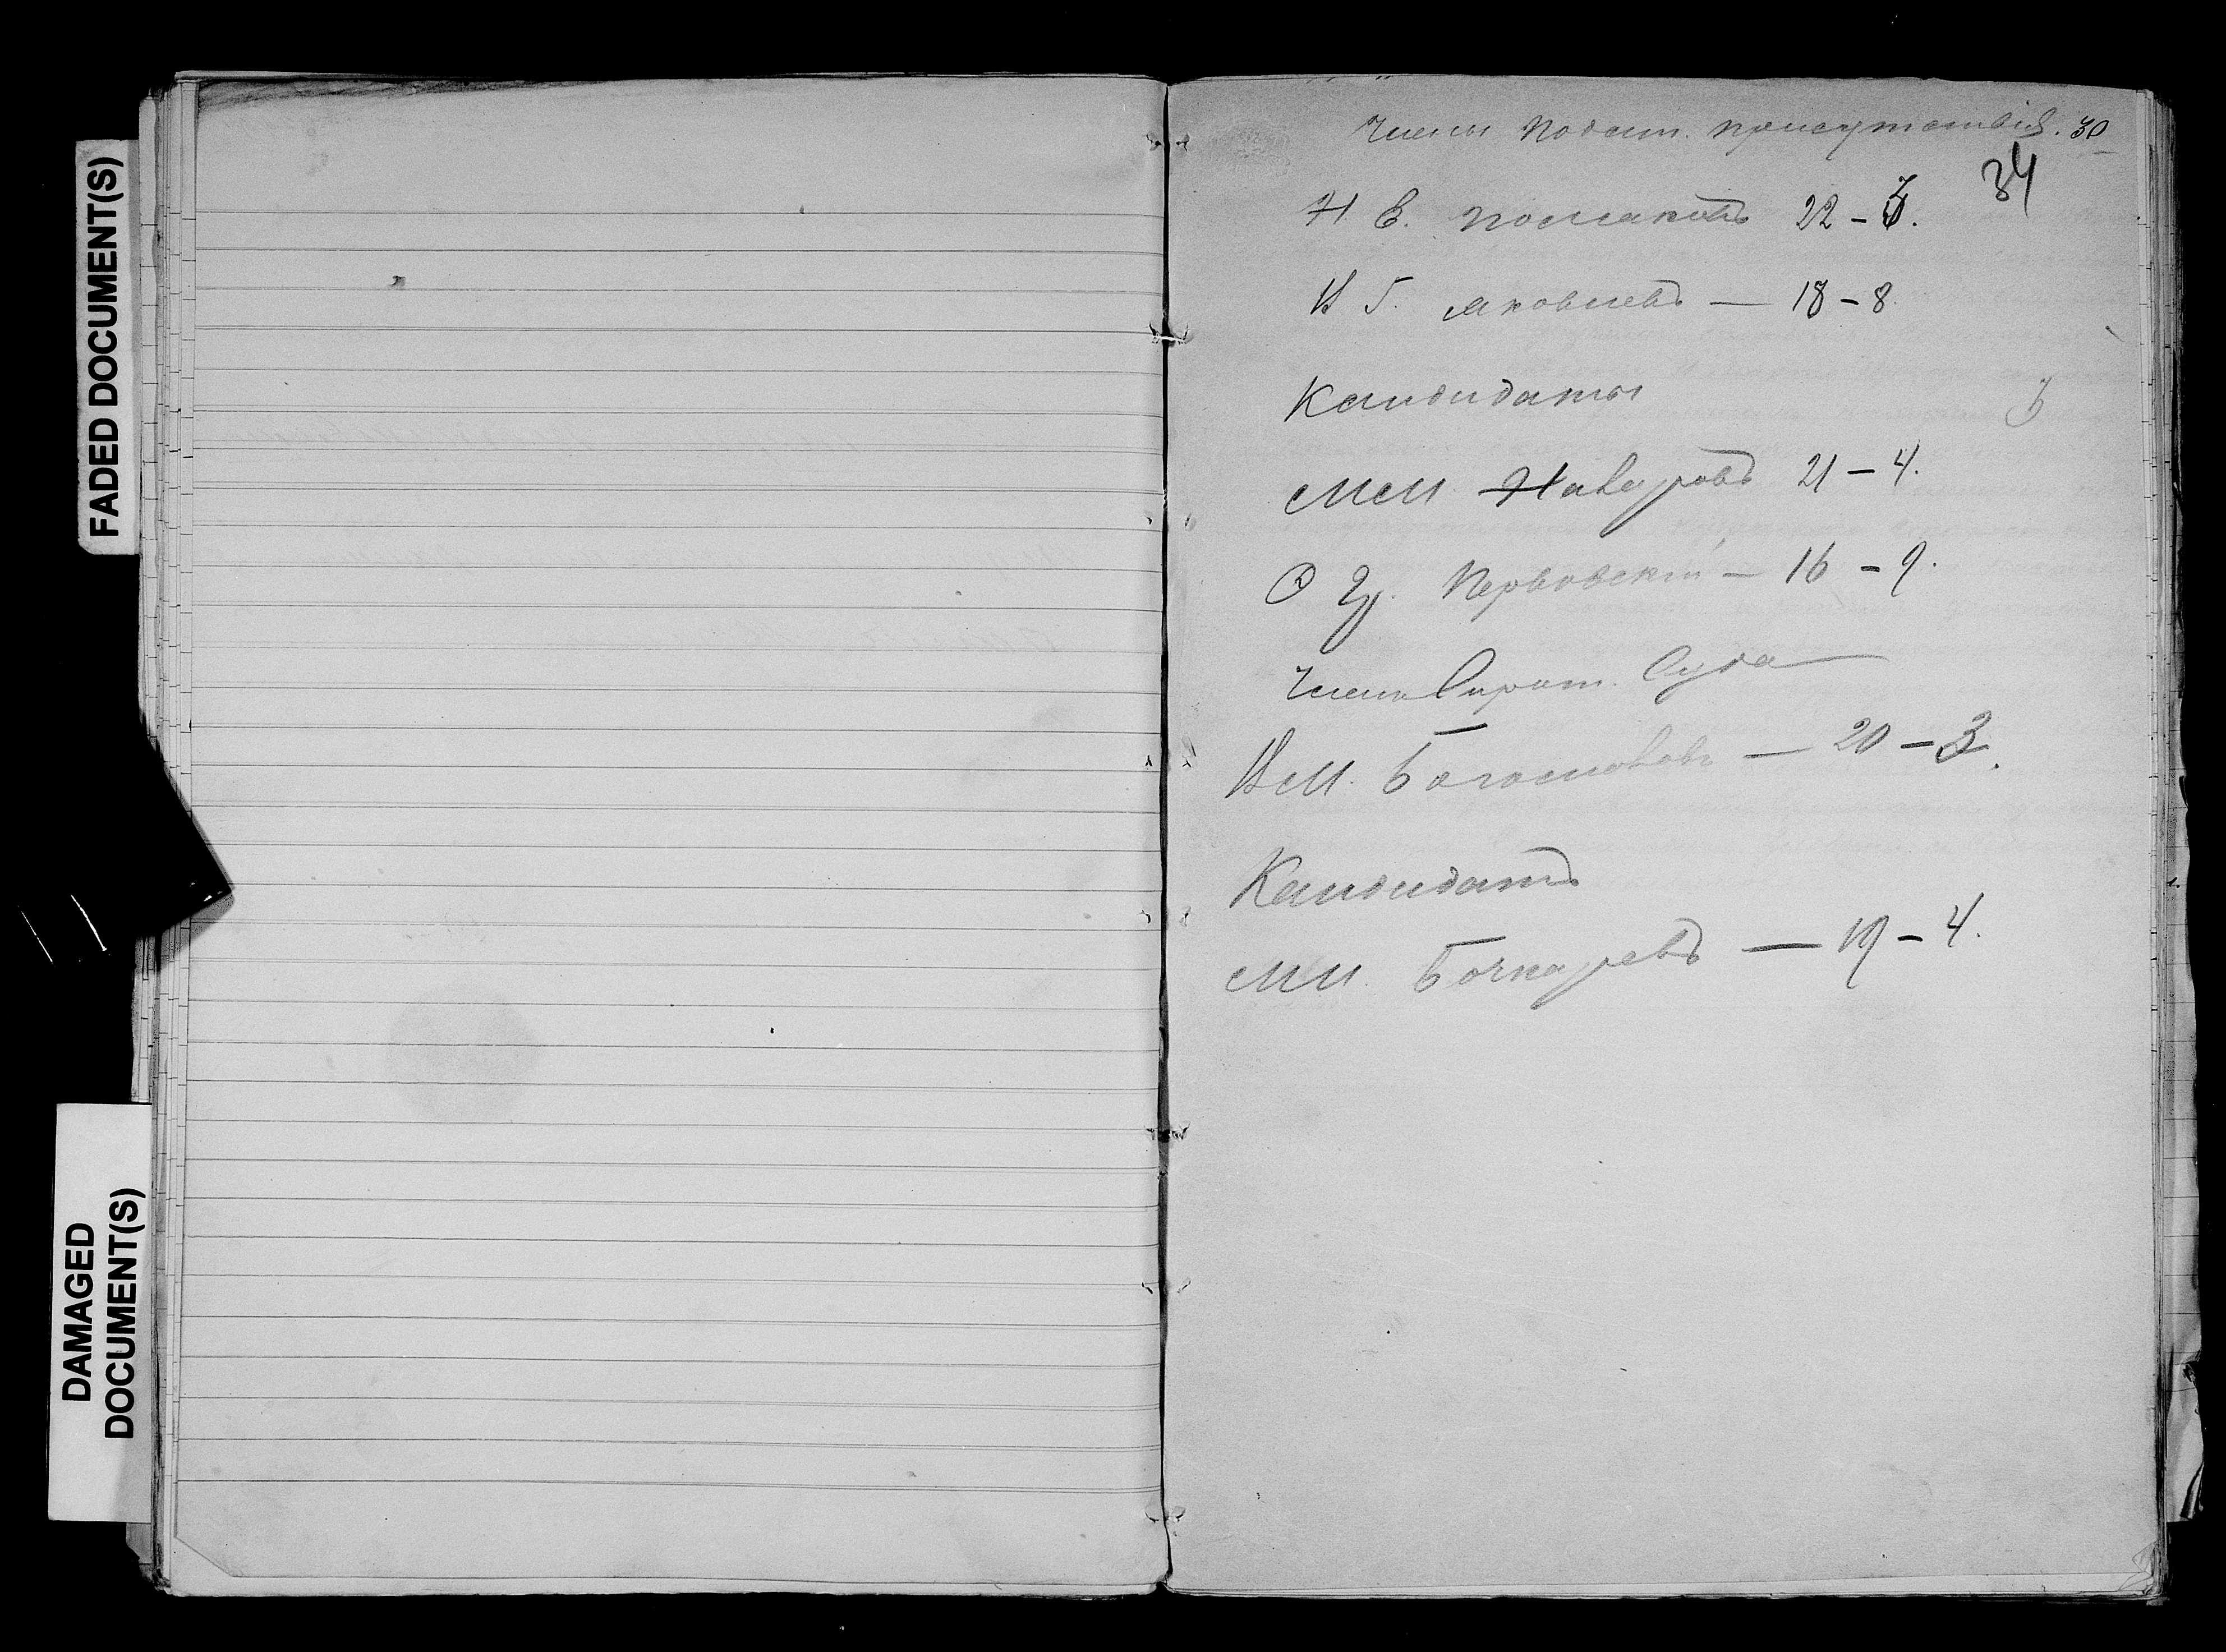 FADED DOCUMENT(S)
DAMAGED
DOCUMENT(S)
Члены Подат. присутствія. 30
34
Н Е. Полшковъ 22 –
И Г. Яковлевъ — 18 – 8
Кандидаты
М М Наваровъ 21 – 4.
Ѳ Гр. Перововскій — 16 – 9.
Члены Сирот. Суда
И М. Богослововъ — 20 – 3.
Кандидатъ
М И. Бочкаревъ — 19 – 4.